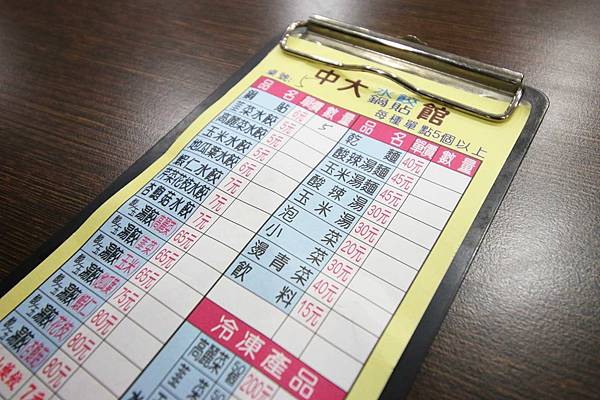 桌號: 5
中大水餃鍋貼館
每種單點5個以上
品名 單價 數量
鍋貼 6元 5
韭菜水餃 5元
高麗菜水餃 5元
玉米水餃 5元
地瓜葉水餃 7元
蝦仁水餃 7元
花枝水餃 7元
65元
韭菜 65元
玉米 65元
75元
蝦仁 80元
花枝 80元
80元
品名 單價 數量
乾麵 40元
酸辣湯麵 45元
玉米湯麵 45元
酸辣湯 30元
玉米湯 30元
泡菜 20元
小菜 30元
燙青菜 40元
飲料 15元
冷凍產品
高麗菜 50個 200元
韭菜